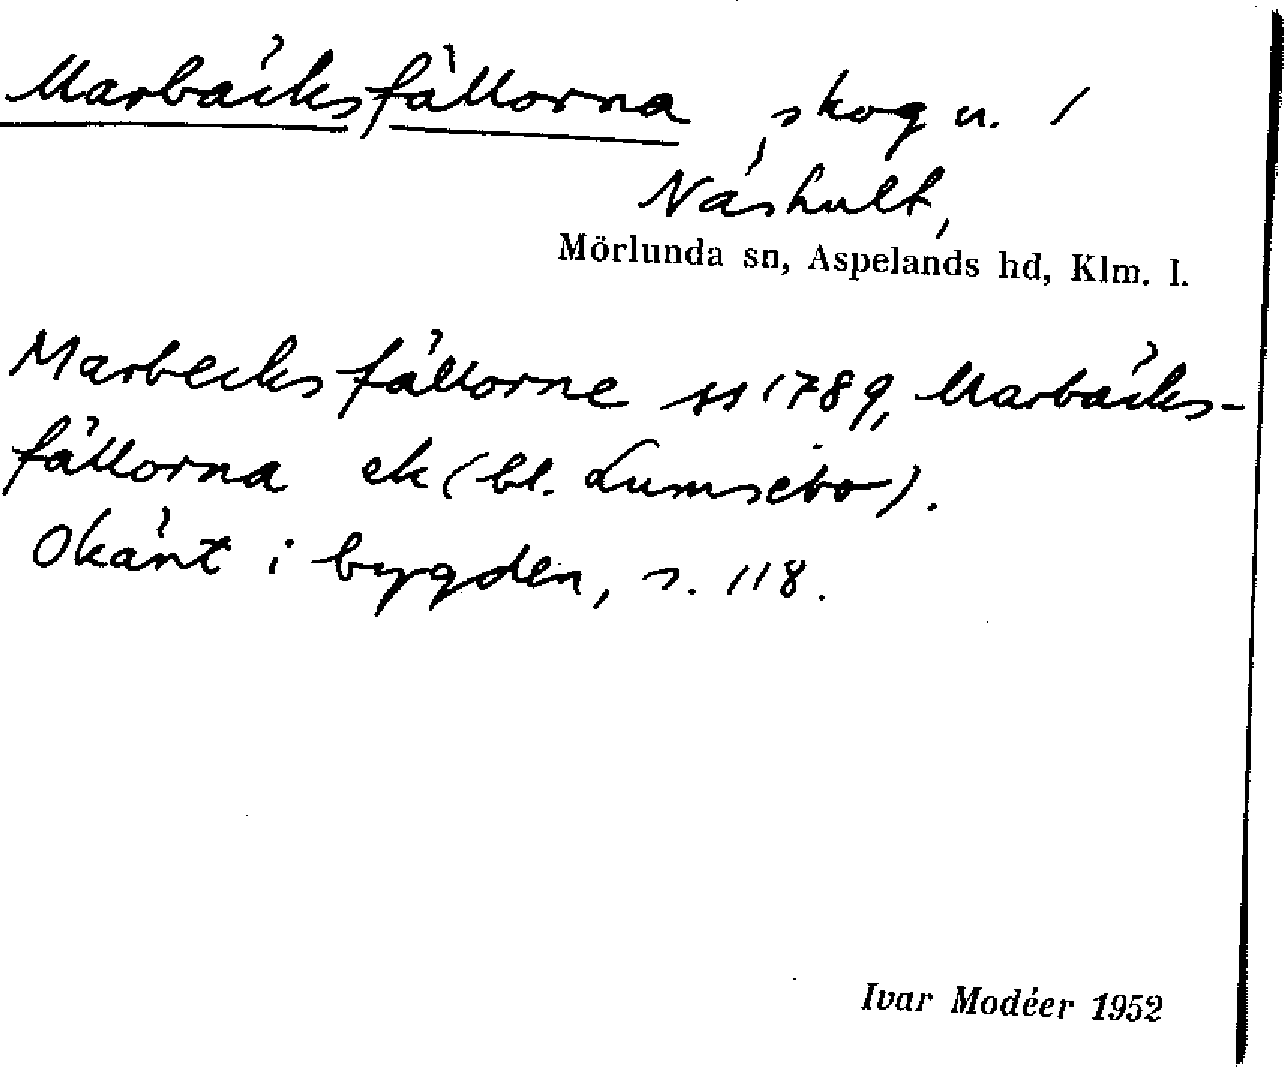 Marbäcksfällorna, skog u. /
Näshult,
Mörlunda sn, Aspelands hd, Klm. l.
Marbecksfällorne ss 1789, Marbäcks-
fällorna ek (bl. Lumsebo).
Okänt i bygden, s. 118.
Ivar Modéer 1952